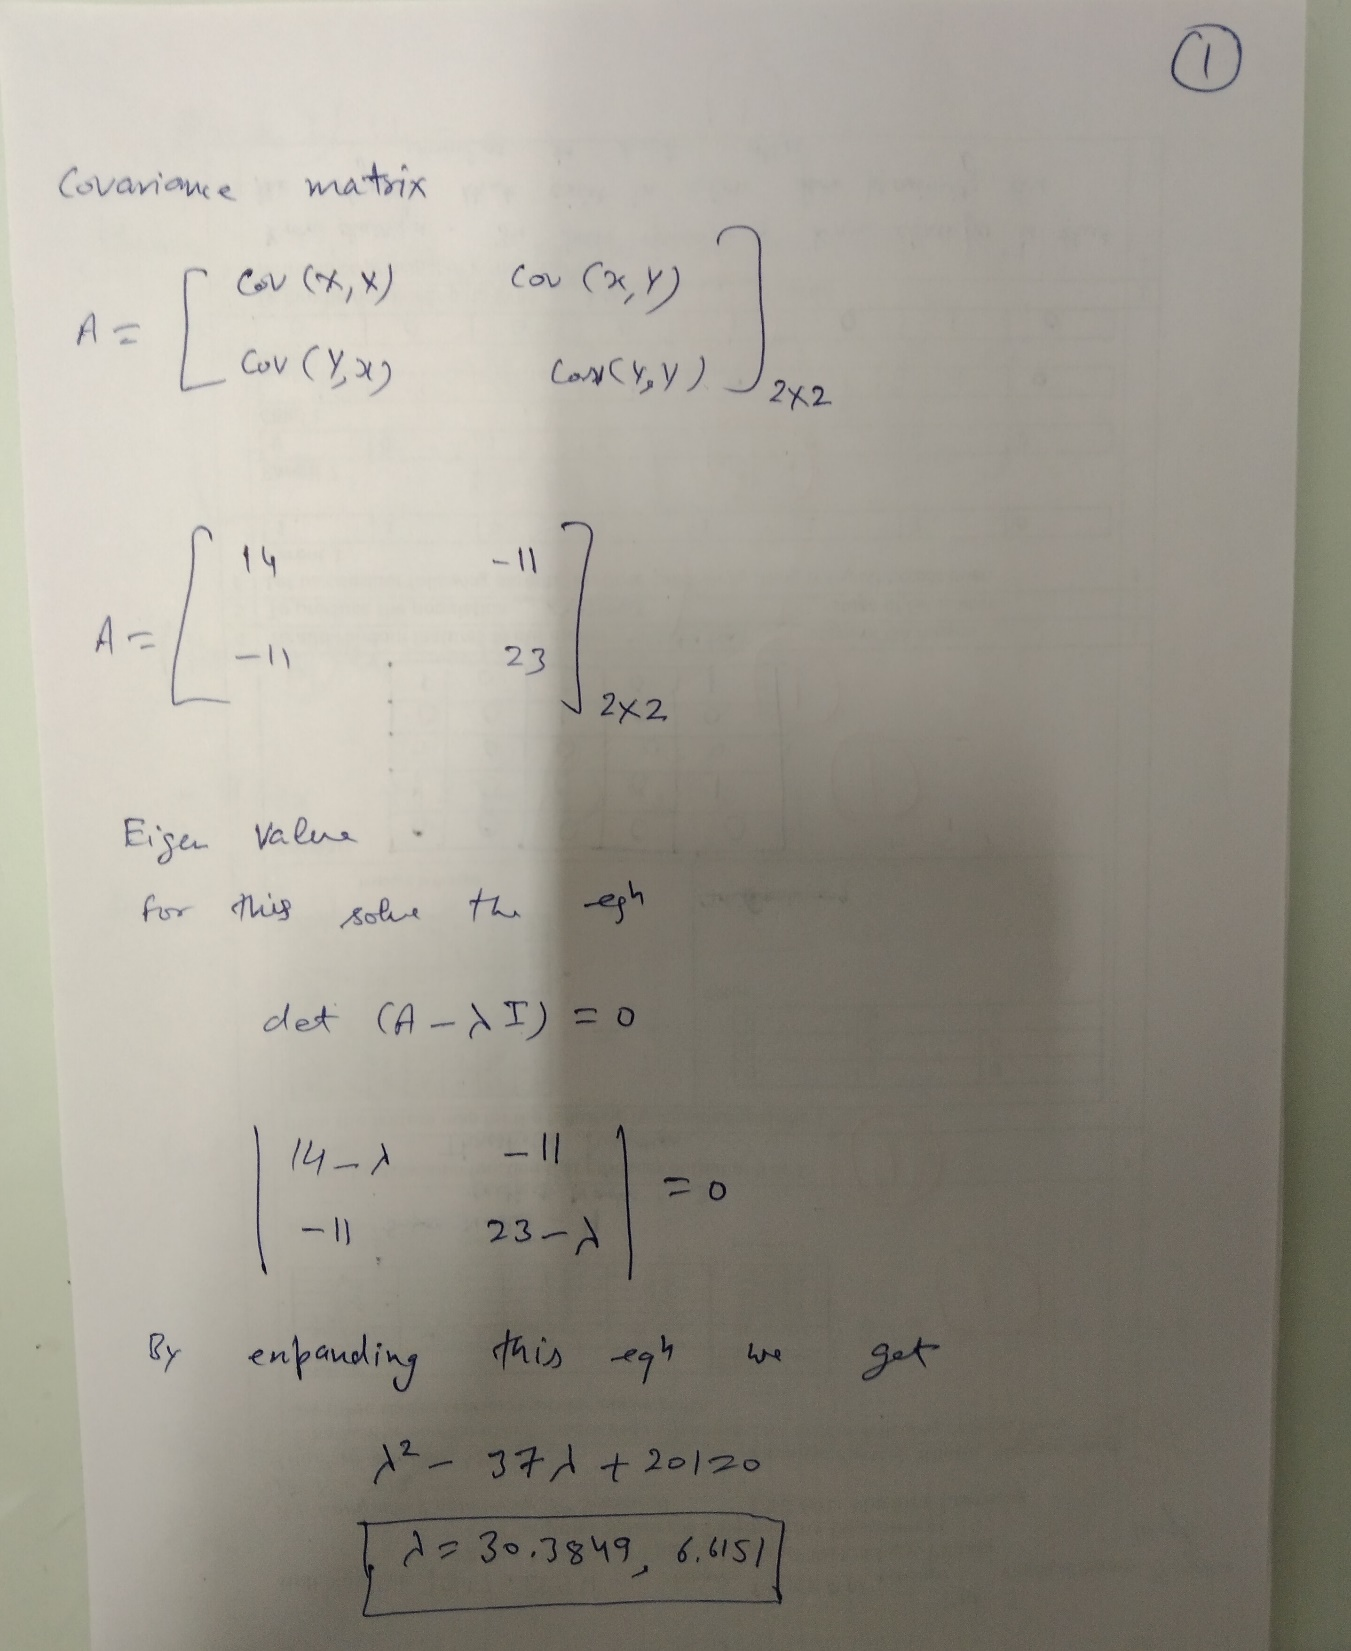 1
Covariance matrix
A = [ Cov (X, X) Cov (x, Y)
Cov (Y, x) Cov (Y, Y) ] 2×2
A = [ 14 -11
-11 23 ] 2×2
Eigen Value
for this solve the eqn
det (A - λ I) = 0
| 14 - λ -11 | = 0
| -11 23 - λ |
By enpanding this eqn we get
λ² - 37 λ + 201 = 0
λ = 30.3849, 6.6151